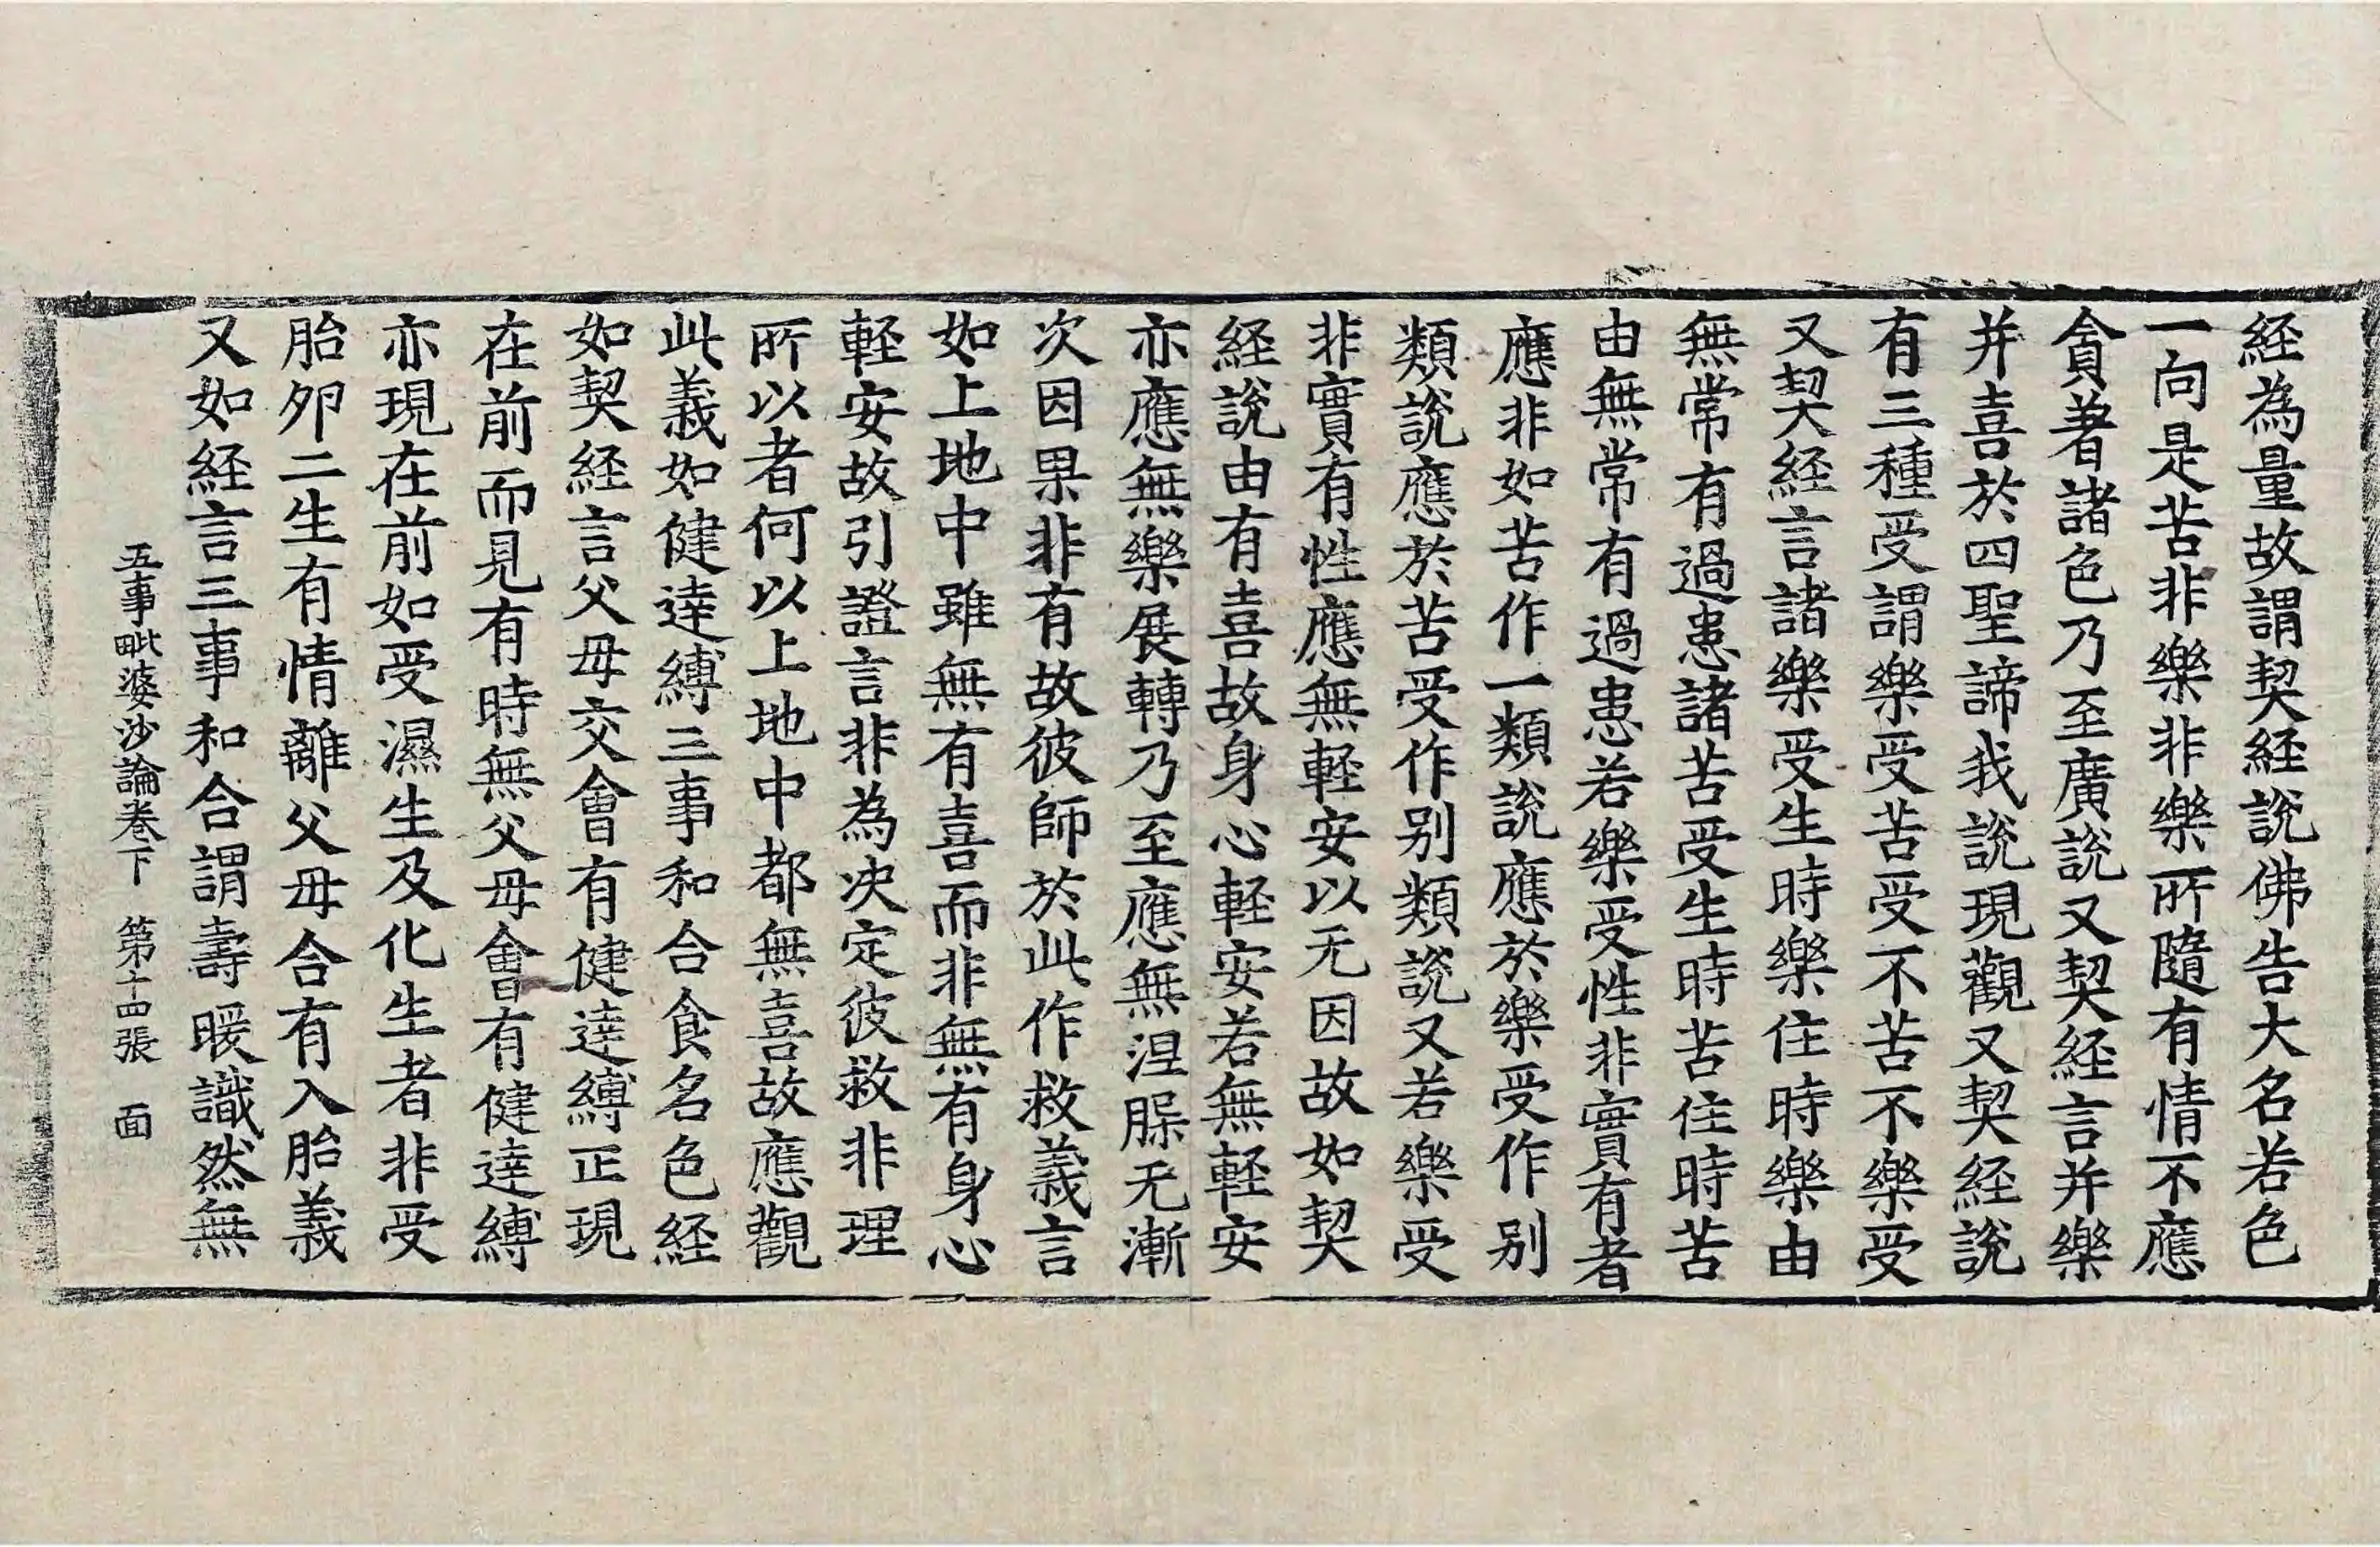 経為量故謂契経說佛告大名若色
一向是苦非樂非樂所隨有情不應
貪著諸色乃至廣說又契経言并樂
并喜於四聖諦我說現觀又契経說
有三種受謂樂受苦受不苦不樂受
又契経言諸樂受生時樂住時樂由
無常有過患諸苦受生時苦住時苦
由無常有過患若樂受性非實有者
應非如苦作一類說應於樂受作別
類說應於苦受作別類說又若樂受
非實有性應無軽安以无因故如契
経說由有喜故身心軽安若無軽安
亦應無樂展轉乃至應無涅槃无漸
次因果非有故彼師於此作救義言
如上地中雖無有喜而非無有身心
軽安故引證言非為決定彼救非理
所以者何以上地中都無喜故應觀
此義如健達縛三事和合食名色経
如契経言父母交會有健達縛正現
在前而見有時無父母會有健達縛
亦現在前如受濕生及化生者非受
胎卵二生有情離父母合有入胎義
又如経言三事和合謂壽暖識然無
五事毗婆沙論卷下 第十四張 面